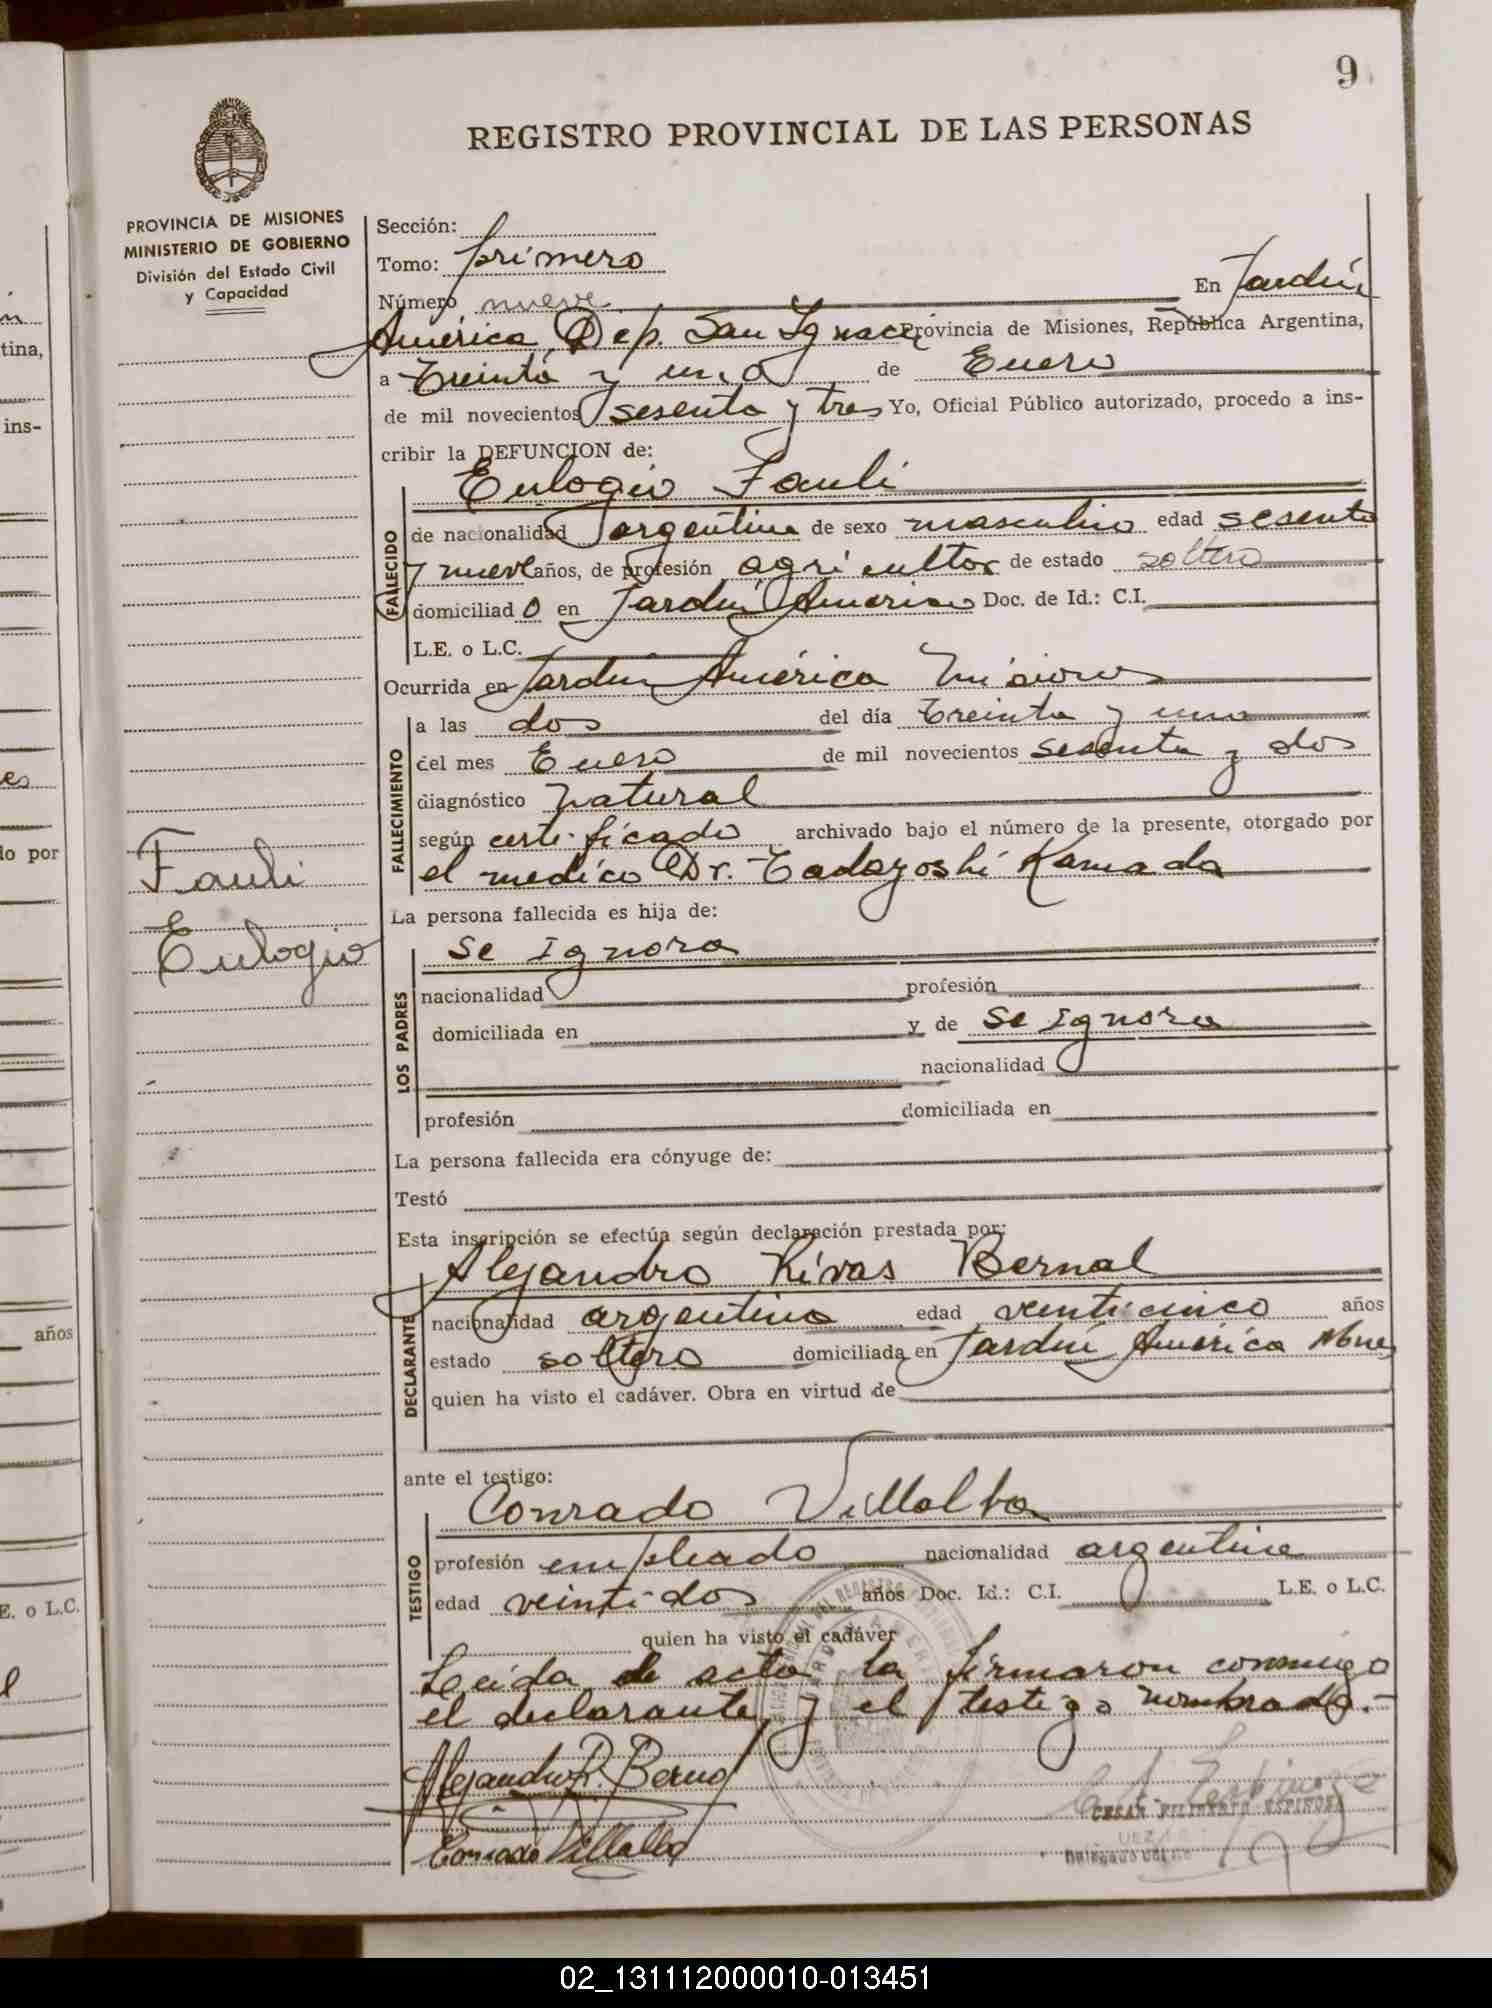 9
REGISTRO PROVINCIAL DE LAS PERSONAS
PROVINCIA DE MISIONES
MINISTERIO DE GOBIERNO
División del Estado Civil
y Capacidad
Sección:
Tomo: primero
Número nueve En Jardín
América Dep. San Ignacio Provincia de Misiones, República Argentina,
a Treinta y uno de Enero
de mil novecientos sesenta y tres Yo, Oficial Público autorizado, procedo a ins-
cribir la DEFUNCION de:
Eulogio Fauli
FALLECIDO
de nacionalidad argentina de sexo masculino edad sesenta
y nueve años, de profesión agricultor de estado soltero
domiciliado en Jardín América Doc. de Id.: C.I.
L.E. o L.C.
Ocurrida en Jardín América Misiones
FALLECIMIENTO
a las dos del día treinta y uno
del mes Enero de mil novecientos sesenta y dos
diagnóstico natural
según certificado archivado bajo el número de la presente, otorgado por
el medico Dr. Tadayoshi Kamada
Fauli
Eulogio
La persona fallecida es hija de:
LOS PADRES
se Ignora
nacionalidad profesión
domiciliada en y de se Ignora
nacionalidad
profesión domiciliada en
La persona fallecida era cónyuge de:
Testó
Esta inscripción se efectúa según declaración prestada por:
Alejandro Rivas Bernal
DECLARANTE
nacionalidad argentina edad venticinco años
estado soltero domiciliada en Jardín América Mnes
quien ha visto el cadáver. Obra en virtud de
ante el testigo:
Conrado Villalba
TESTIGO
profesión empleado nacionalidad argentina
edad veintidos años Doc. Id.: C.I. L.E. o L.C.
quien ha visto el cadáver
Leida el acta la firmaron conmigo
el declarante y el testigo nombrado.-
Alejandro R. Bernal
Conrado Villalba
CESAR FILIBERTO ESPINOSA
02_131112000010-013451